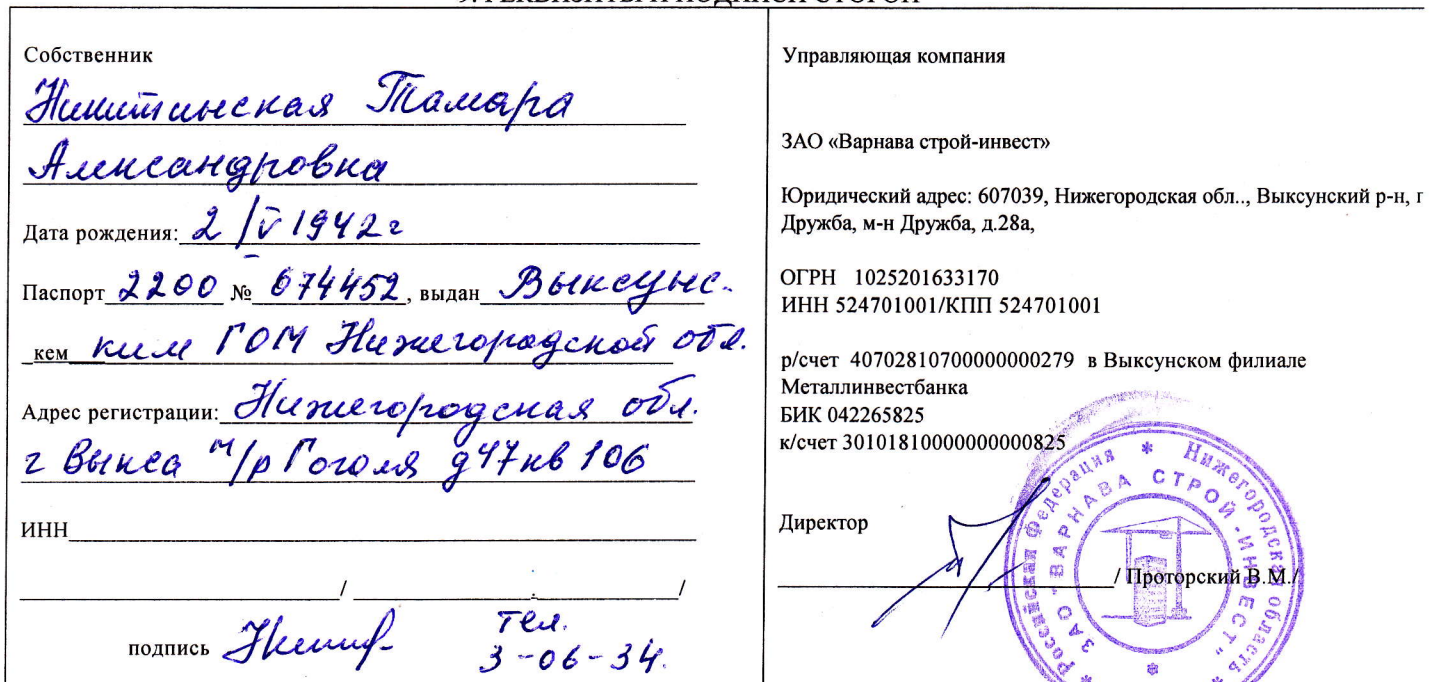 9. РЕКВИЗИТЫ И ПОДПИСИ СТОРОН
Собственник
Никитинская Тамара
Александровна
Дата рождения: 2/V 1942г
Паспорт 2200 № 674452, выдан Выксунс-
кем ким ГОМ Нижегородской обл.
Адрес регистрации: Нижегородская обл.
г Выкса м/р Гоголя д47 кв 106
ИНН
/ /
подпись тел.
3-06-34.
Управляющая компания
ЗАО «Варнава строй-инвест»
Юридический адрес: 607039, Нижегородская обл.., Выксунский р-н, г
Дружба, м-н Дружба, д.28а,
ОГРН 1025201633170
ИНН 524701001/КПП 524701001
р/счет 40702810700000000279 в Выксунском филиале
Металлинвестбанка
БИК 042265825
к/счет 30101810000000000825
Директор
/ Проторский В.М./
* Российская Федерация * Нижегородская область *
ЗАО "ВАРНАВА СТРОЙ-ИНВЕСТ" *